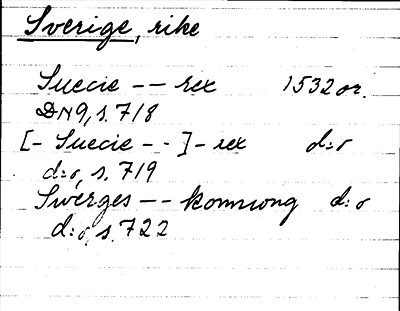 Sverige, rike
Suecie -- rex 1532 or.
DN9, s. 718
[- Suecie --]- rex d:o
d:o, s. 719
Swerges -- konnwng d:o
d:o, s. 722